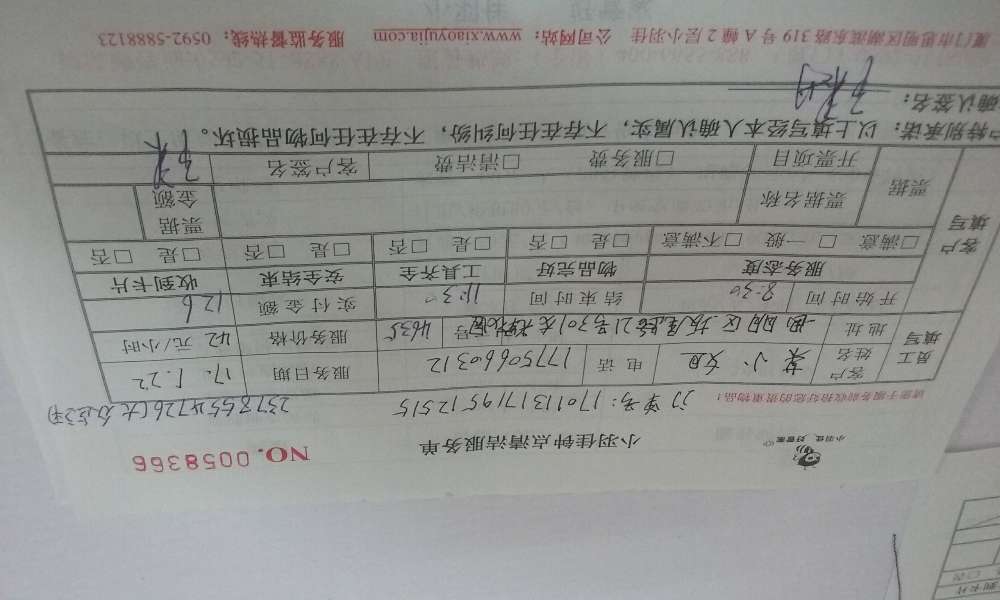 小羽佳, 好管家
小羽佳钟点清洁服务单
NO. 0058366
请您于服务前收拾好您的贵重物品!
订单号: 17011317195712515
员工填写
客户姓名
电话 17750660312
服务日期 17. 1. 22
地址
号 4635
服务价格 42 元/小时
开始时间 8:30
结束时间 11:30
实付金额 126
客户填写
服务态度
物品完好
工具齐全
安全结束
收到卡片
□满意 □一般 □不满意
□是 □否
□是 □否
□是 □否
□是 □否
票据
票据名称
票据金额
开票项目
□服务费 □清洁费
客户签名
特别承诺: 以上填写经本人确认属实, 不存在任何纠纷, 不存在任何物品损坏。
确认签名:
厦门市思明区湖滨东路 319 号 A 幢 2 层小羽佳 公司网站: www.xiaoyujia.com 服务监督热线: 0592-5888123